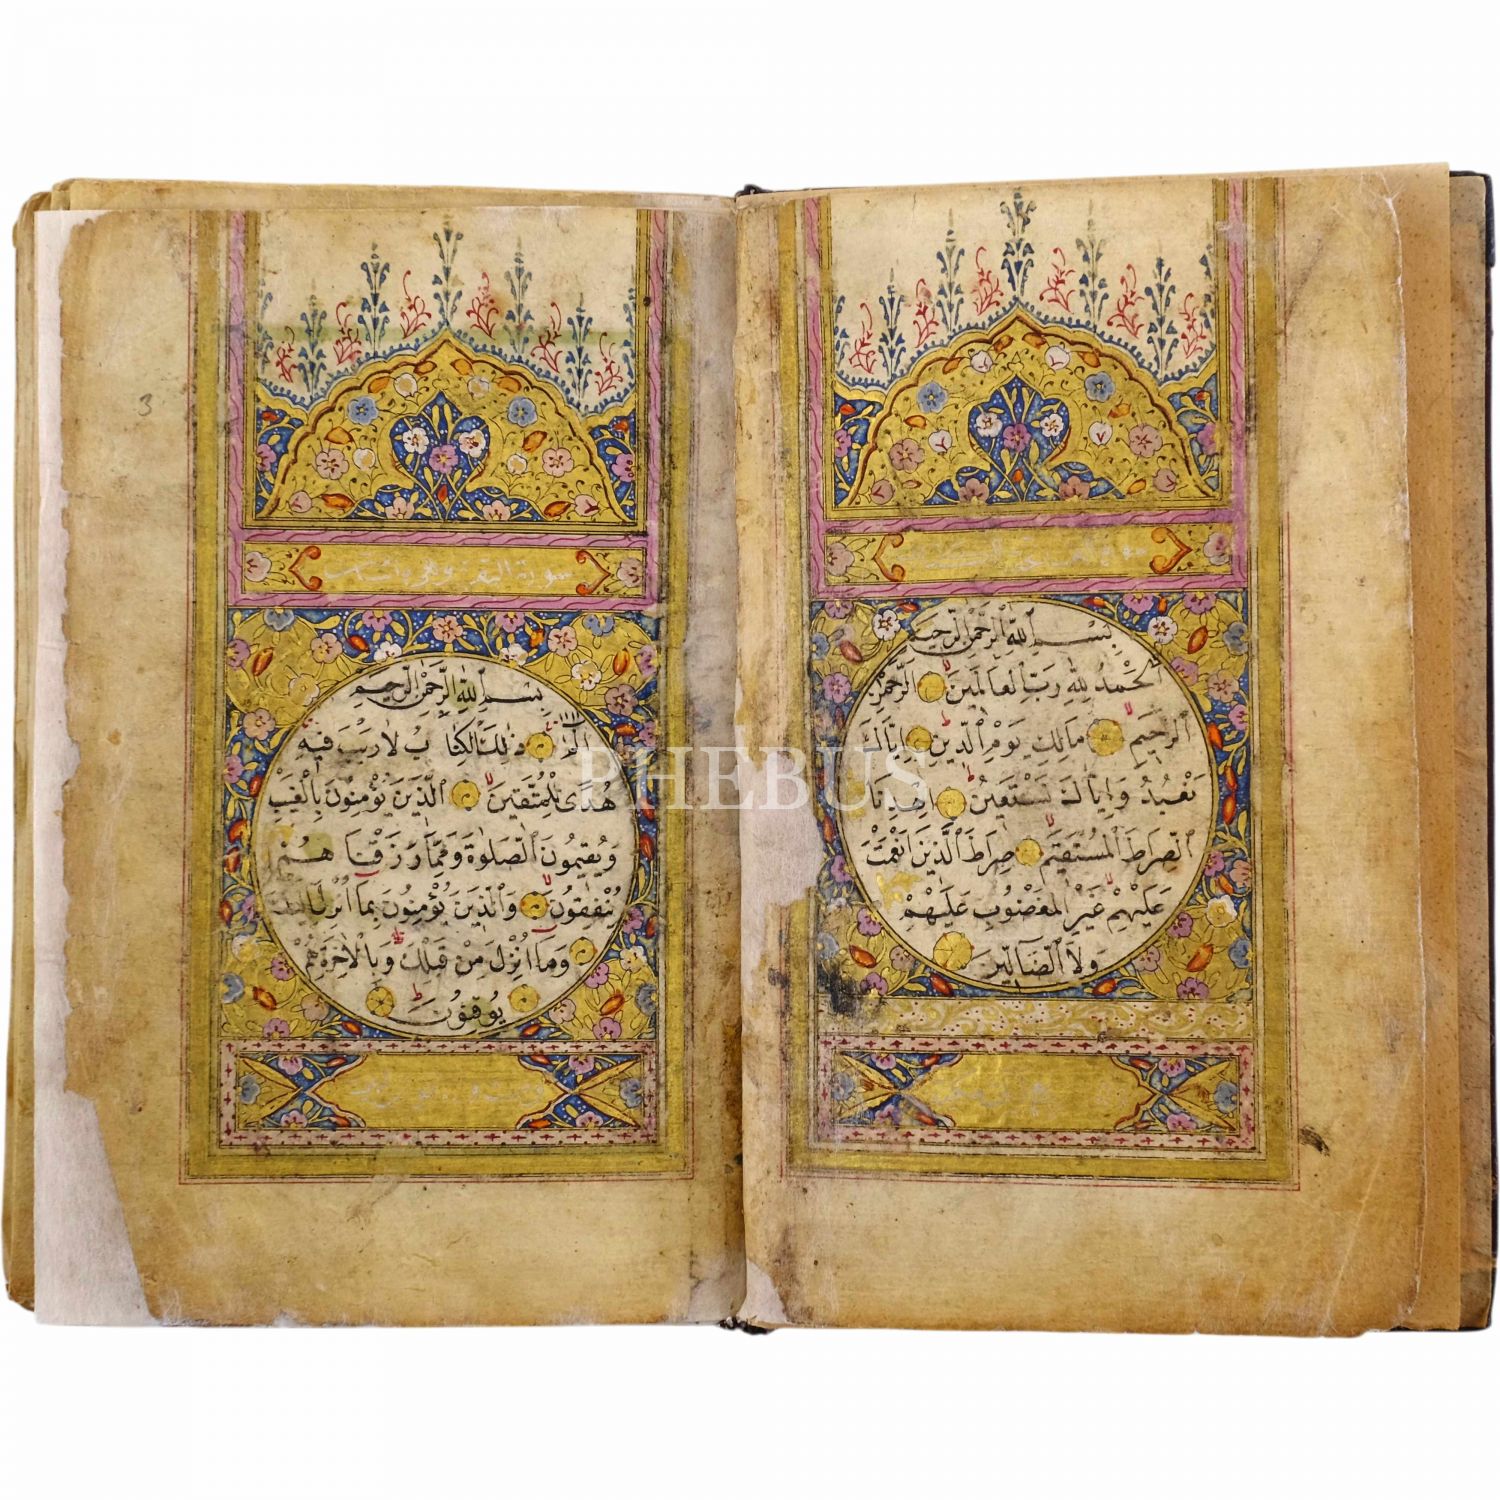 بسم الله الرحمن الرحيم
الحمد لله رب العالمين الرحمن
الرحيم مالك يوم الدين اياك
نعبد واياك نستعين اهدنا
الصراط المستقيم صراط الذين انعمت
عليهم غير المغضوب عليهم
ولا الضالين
سورة البقرة وهى مائتان
بسم الله الرحمن الرحيم
الم ذلك الكتاب لا ريب فيه
هدى للمتقين الذين يؤمنون بالغيب
ويقيمون الصلوة ومما رزقناهم
ينفقون والذين يؤمنون بما انزل اليك
وما انزل من قبلك وبالاخرة هم
يوقنون
3
PHEBUS